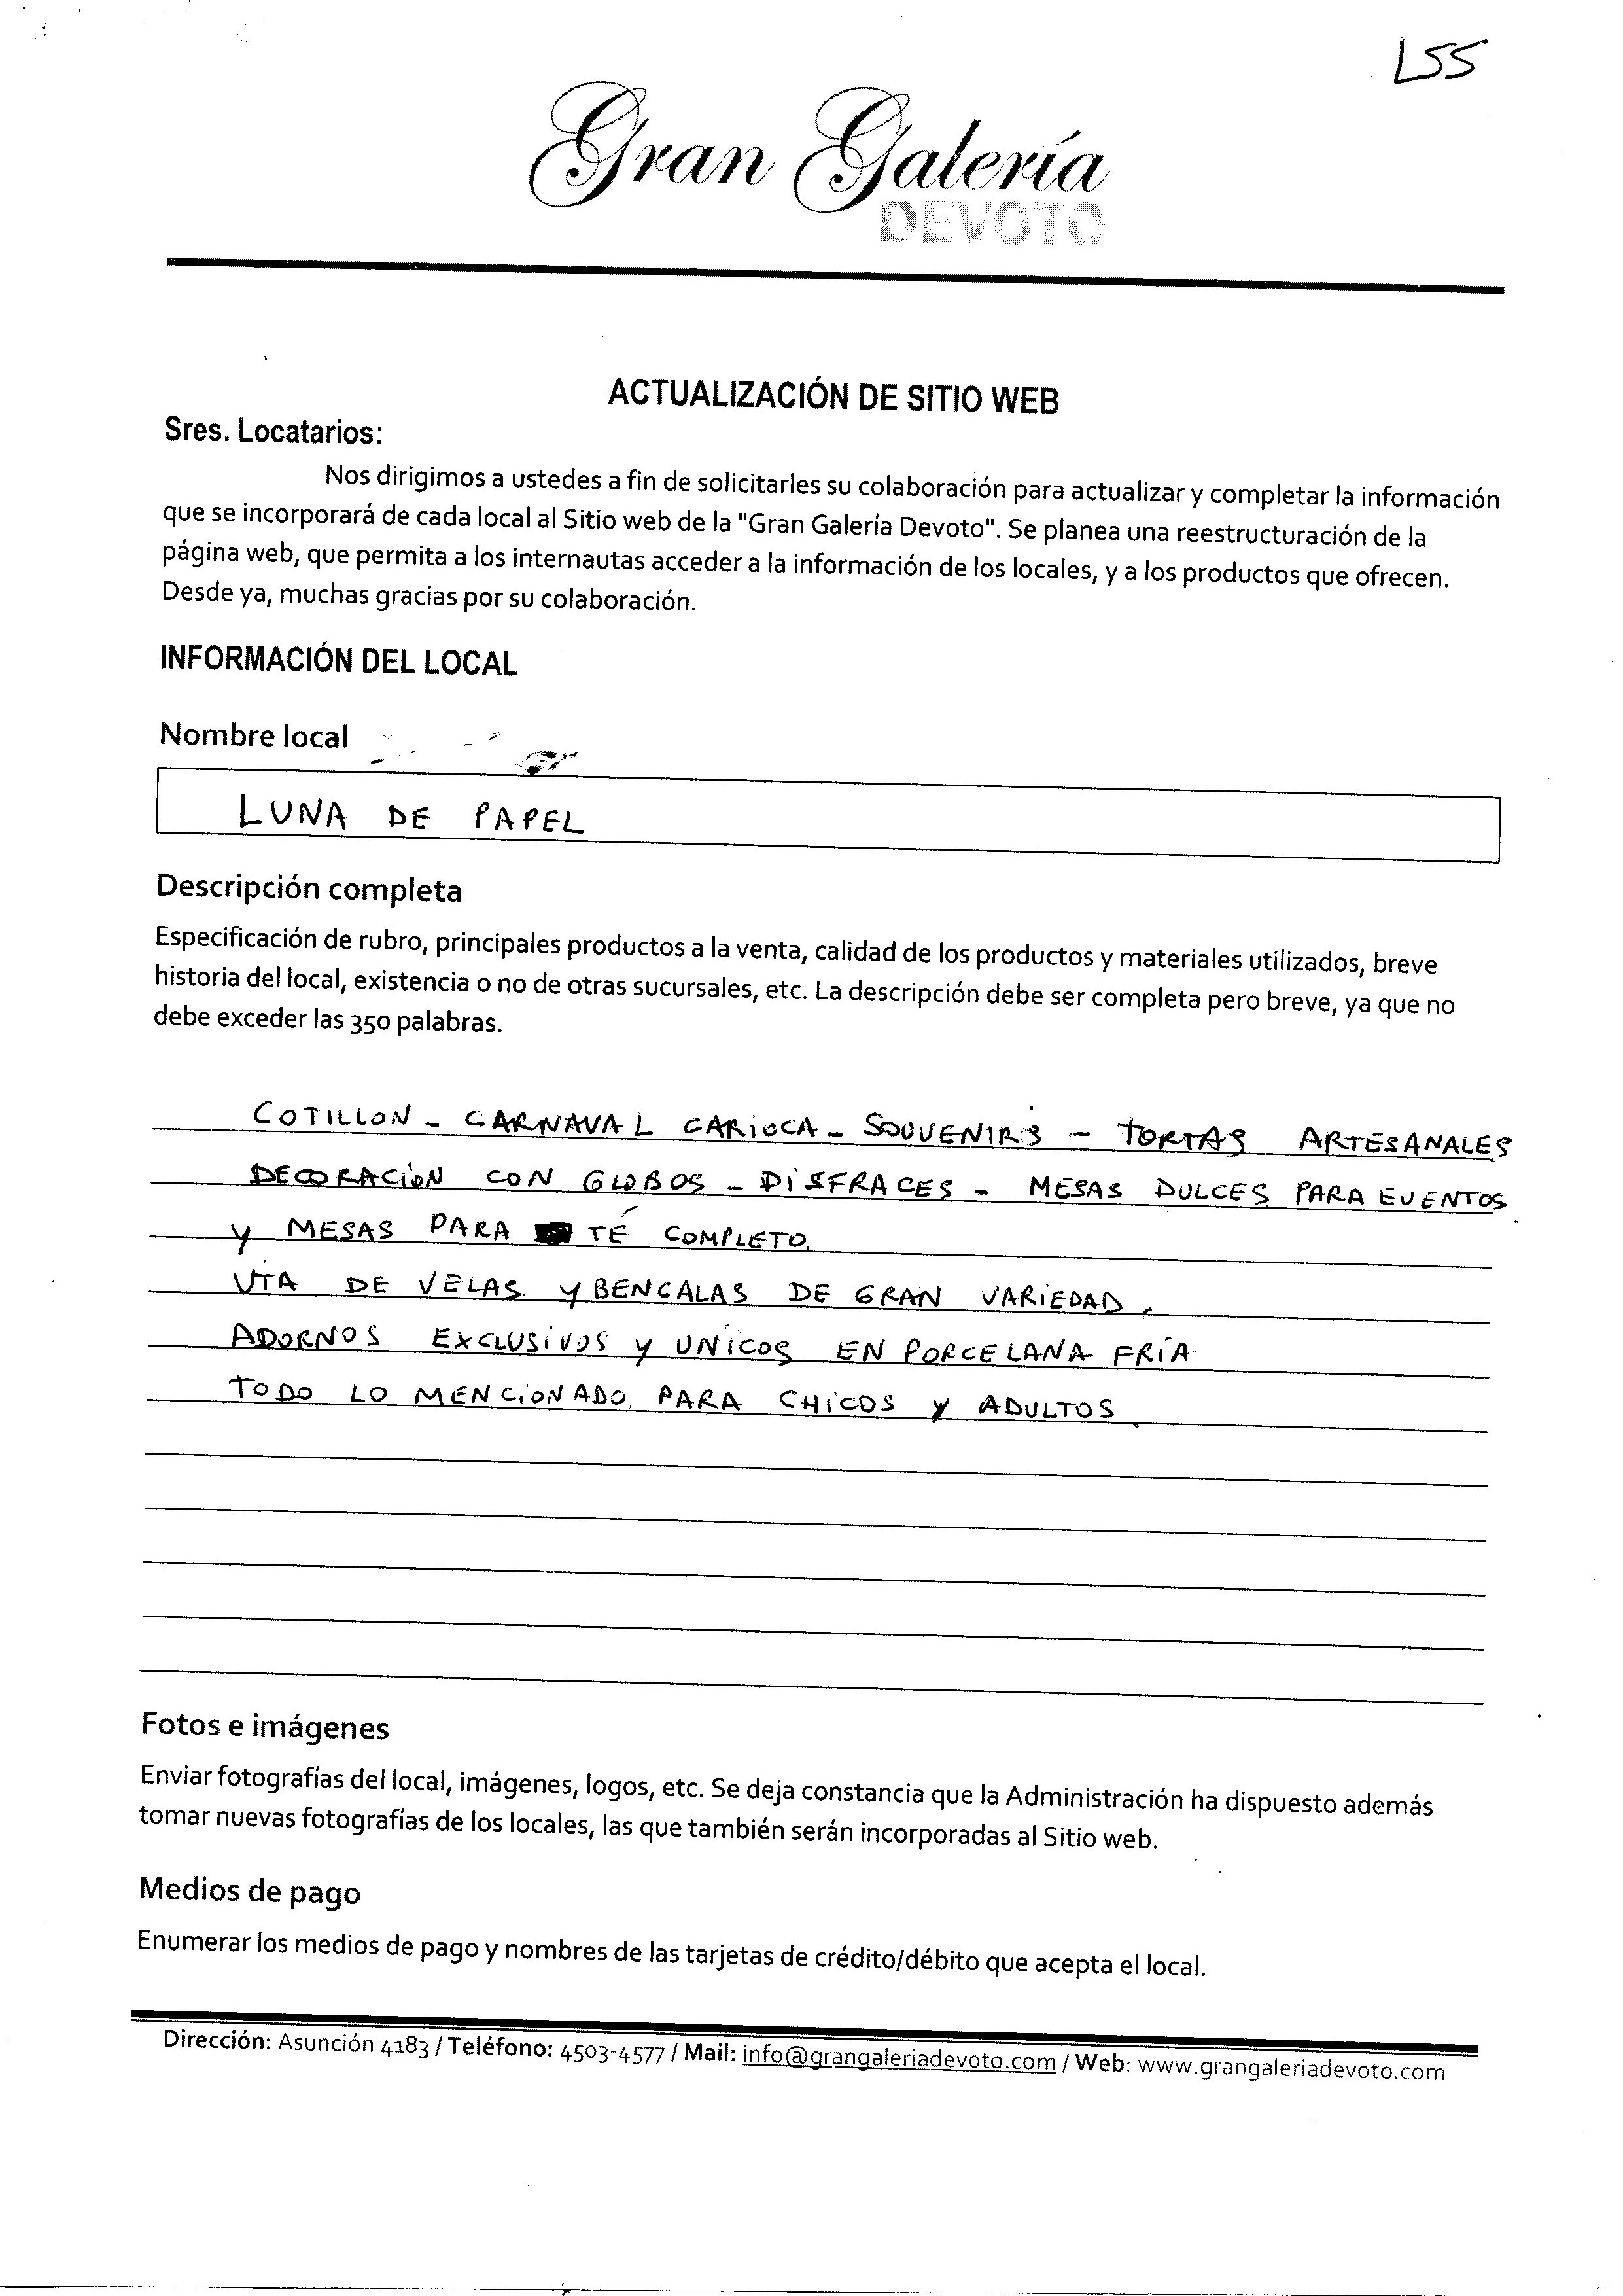 L55
Gran Galería
DEVOTO
ACTUALIZACIÓN DE SITIO WEB
Sres. Locatarios:
Nos dirigimos a ustedes a fin de solicitarles su colaboración para actualizar y completar la información
que se incorporará de cada local al Sitio web de la "Gran Galería Devoto". Se planea una reestructuración de la
página web, que permita a los internautas acceder a la información de los locales, y a los productos que ofrecen.
Desde ya, muchas gracias por su colaboración.
INFORMACIÓN DEL LOCAL
Nombre local
LUNA DE PAPEL
Descripción completa
Especificación de rubro, principales productos a la venta, calidad de los productos y materiales utilizados, breve
historia del local, existencia o no de otras sucursales, etc. La descripción debe ser completa pero breve, ya que no
debe exceder las 350 palabras.
COTILLON - CARNAVAL CARIOCA - SOUVENIRS - TORTAS ARTESANALES
DECORACIÓN CON GLOBOS - DISFRACES - MESAS DULCES PARA EVENTOS
Y MESAS PARA TÉ COMPLETO.
VTA DE VELAS Y BENGALAS DE GRAN VARIEDAD.
ADORNOS EXCLUSIVOS Y UNICOS EN PORCELANA FRÍA
TODO LO MENCIONADO PARA CHICOS Y ADULTOS
Fotos e imágenes
Enviar fotografías del local, imágenes, logos, etc. Se deja constancia que la Administración ha dispuesto además
tomar nuevas fotografías de los locales, las que también serán incorporadas al Sitio web.
Medios de pago
Enumerar los medios de pago y nombres de las tarjetas de crédito/débito que acepta el local.
Dirección: Asunción 4183 / Teléfono: 4503-4577 / Mail: info@grangaleriadevoto.com / Web: www.grangaleriadevoto.com